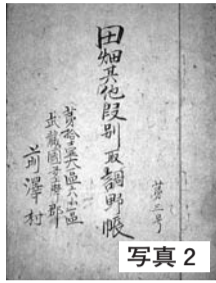 第三号
田畑其他段別取調野帳
第拾壹大區六小區
武藏國多摩郡
前澤村
写真2